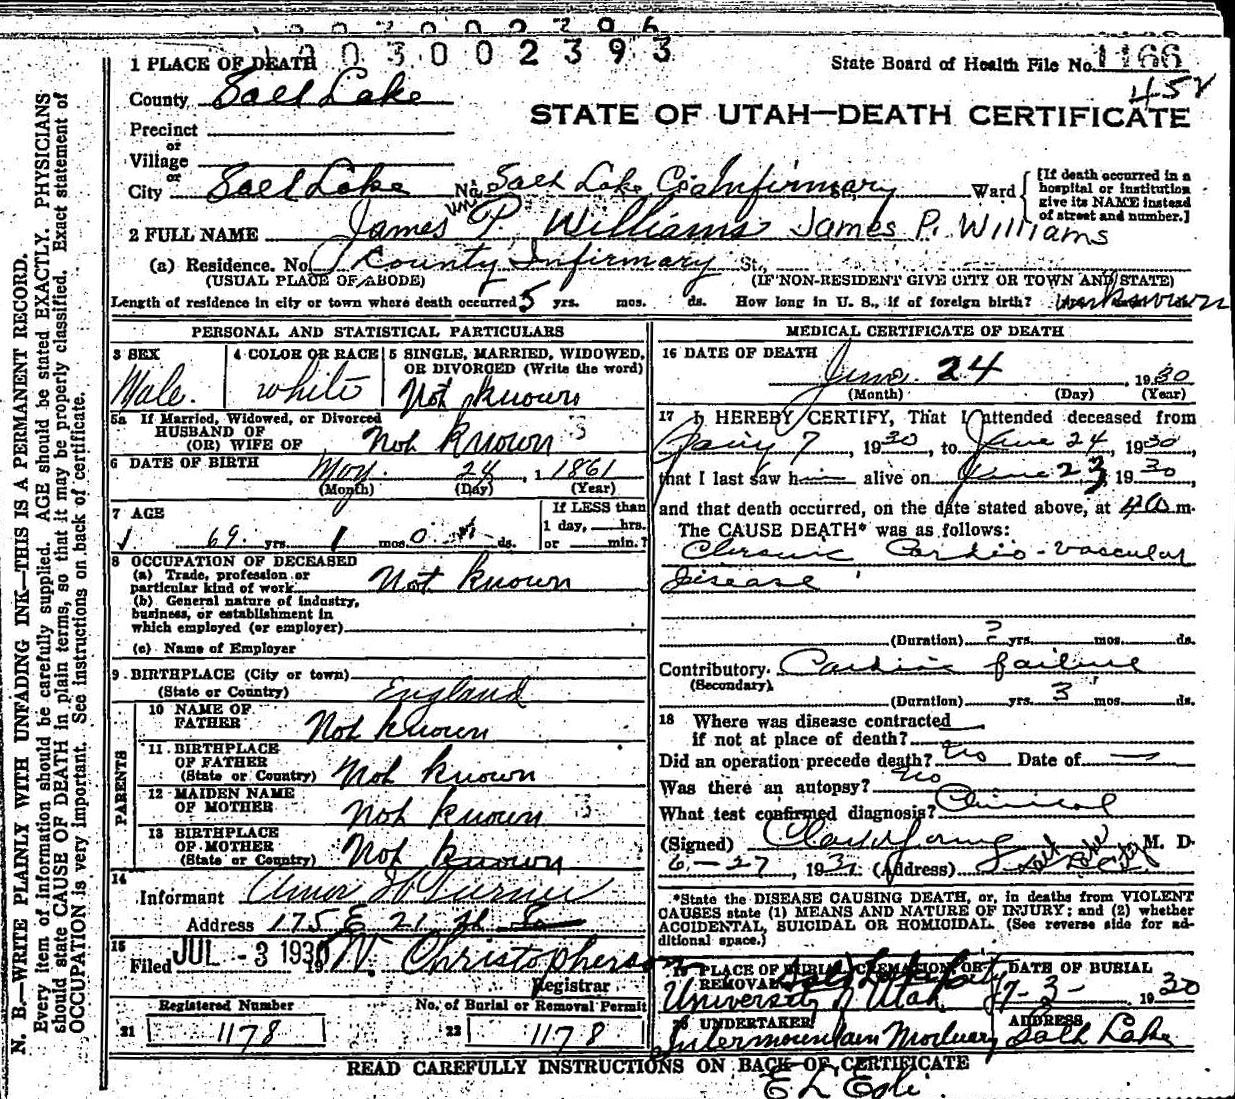 1 0 0 3 0 0 0 2 3 9 3
1 PLACE OF DEATH State Board of Health File No. 1166
County Salt Lake 458
STATE OF UTAH—DEATH CERTIFICATE
Precinct
or
Village
or
City Salt Lake No. Salt Lake Co. Infirmary St., Ward [If death occurred in a hospital or institution give its NAME instead of street and number.]
2 FULL NAME James P. Williams James P. Williams
(a) Residence. No. County Infirmary St.,
(USUAL PLACE OF ABODE) (IF NON-RESIDENT GIVE CITY OR TOWN AND STATE)
Length of residence in city or town where death occurred 5 yrs. mos. ds. How long in U. S., if of foreign birth? unknown
PERSONAL AND STATISTICAL PARTICULARS
3 SEX Male.
4 COLOR OR RACE white
5 SINGLE, MARRIED, WIDOWED, OR DIVORCED (Write the word) Not known
5a If Married, Widowed, or Divorced
HUSBAND OF
(OR) WIFE OF Not known 3
6 DATE OF BIRTH May. 24, 1861
(Month) (Day) (Year)
7 AGE 69 yrs. 1 mos. 0 ds.
If LESS than
1 day, hrs.
or min.?
8 OCCUPATION OF DECEASED
(a) Trade, profession or
particular kind of work Not known
(b) General nature of industry,
business, or establishment in
which employed (or employer)
(c) Name of Employer
9 BIRTHPLACE (City or town)
(State or Country) England
PARENTS
10 NAME OF
FATHER Not known
11 BIRTHPLACE
OF FATHER
(State or Country) Not known
12 MAIDEN NAME
OF MOTHER Not known 3
13 BIRTHPLACE
OF MOTHER
(State or Country) Not known
14
Informant Turner
Address 175 E 21 st So
15
Filed JUL - 3 1930 19 W. Christopherson
Registrar
Registered Number No. of Burial or Removal Permit
21 1178 22 1178
MEDICAL CERTIFICATE OF DEATH
16 DATE OF DEATH June 24, 1930
(Month) (Day) (Year)
17 I HEREBY CERTIFY, That I attended deceased from
Jany 7, 1930, to June 24, 1930,
that I last saw h— alive on June 23, 1930,
and that death occurred, on the date stated above, at 4 a m.
The CAUSE DEATH* was as follows:
Chronic Cardio-vascular
disease
(Duration) ? yrs. mos. ds.
Contributory Cardiac failure
(Secondary)
(Duration) yrs. 3 mos. ds.
18 Where was disease contracted
if not at place of death?
Did an operation precede death? No Date of —
Was there an autopsy? No
What test confirmed diagnosis? Clinical
(Signed) M. D.
6-27, 193 (Address) Salt Lake City
*State the DISEASE CAUSING DEATH, or, in deaths from VIOLENT
CAUSES state (1) MEANS AND NATURE OF INJURY; and (2) whether
ACCIDENTAL, SUICIDAL OR HOMICIDAL. (See reverse side for ad-
ditional space.)
19 PLACE OF BURIAL, CREMATION OR REMOVAL Salt Lake City
University of Utah
DATE OF BURIAL
7-3-1930
20 UNDERTAKER Intermountain Mortuary
ADDRESS Salt Lake
READ CAREFULLY INSTRUCTIONS ON BACK OF CERTIFICATE
E L Egli
N. B.—WRITE PLAINLY WITH UNFADING INK—THIS IS A PERMANENT RECORD.
Every item of information should be carefully supplied. AGE should be stated EXACTLY. PHYSICIANS
should state CAUSE OF DEATH in plain terms, so that it may be properly classified. Exact statement of
OCCUPATION is very important. See instructions on back of certificate.